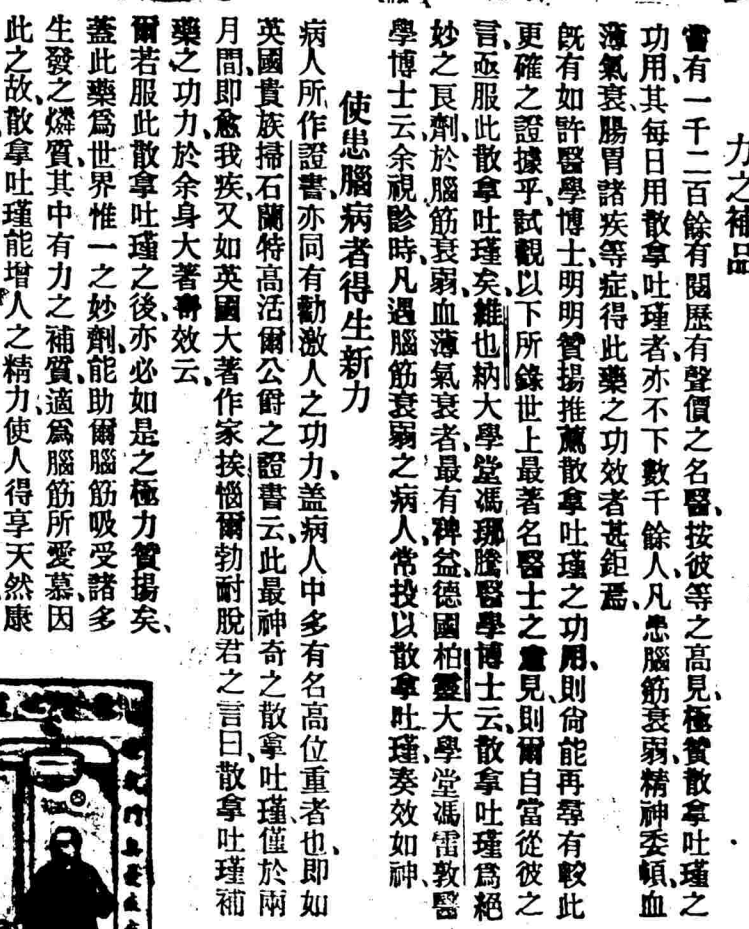 力之補品
當有一千二百餘有閱歷有聲價之名醫、按彼等之高見、極贊散拿吐瑾之
功用、其每日用散拿吐瑾者、亦不下數千餘人、凡患腦筋衰弱、精神委頓、血
薄氣衰、腸胃諸疾等症、得此藥之功效者甚鉅焉
旣有如許醫學博士、明明贊揚推薦散拿吐瑾之功用、則尙能再尋有較此
更確之證據乎、試觀以下所錄世上最著名醫士之意見、則爾自當從彼之
言、亟服此散拿吐瑾矣、維也納大學堂馮瑯騰醫學博士云、散拿吐瑾爲絕
妙之良劑、於腦筋衰弱、血薄氣衰者、最有裨益、德國柏靈大學堂馮雷敦醫
學博士云、余視診時、凡遇腦筋衰弱之病人、常投以散拿吐瑾、奏效如神、
使患腦病者得生新力
病人所作證書、亦同有勸激人之功力、盖病人中多有名高位重者也、即如
英國貴族掃石蘭特高活爾公爵之證書云、此最神奇之散拿吐瑾、僅於兩
月間、即愈我疾、又如英國大著作家挨惱爾勃耐脫君之言曰、散拿吐瑾補
藥之功力、於余身大著奇效云、
爾若服此散拿吐瑾之後、亦必如是之極力贊揚矣、
蓋此藥爲世界惟一之妙劑、能助爾腦筋吸受諸多
生發之燐質、其中有力之補質、適爲腦筋所愛慕、因
此之故、散拿吐瑾能增人之精力、使人得享天然康